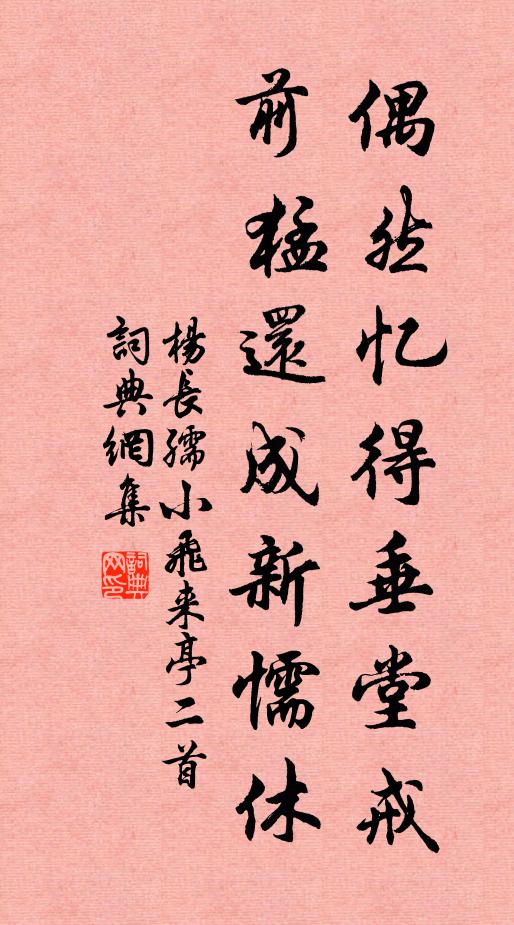 偶然忆得垂堂戒
前猛還成新懦休
楊長孺小飛来亭二首
詞典網集
詞典网印